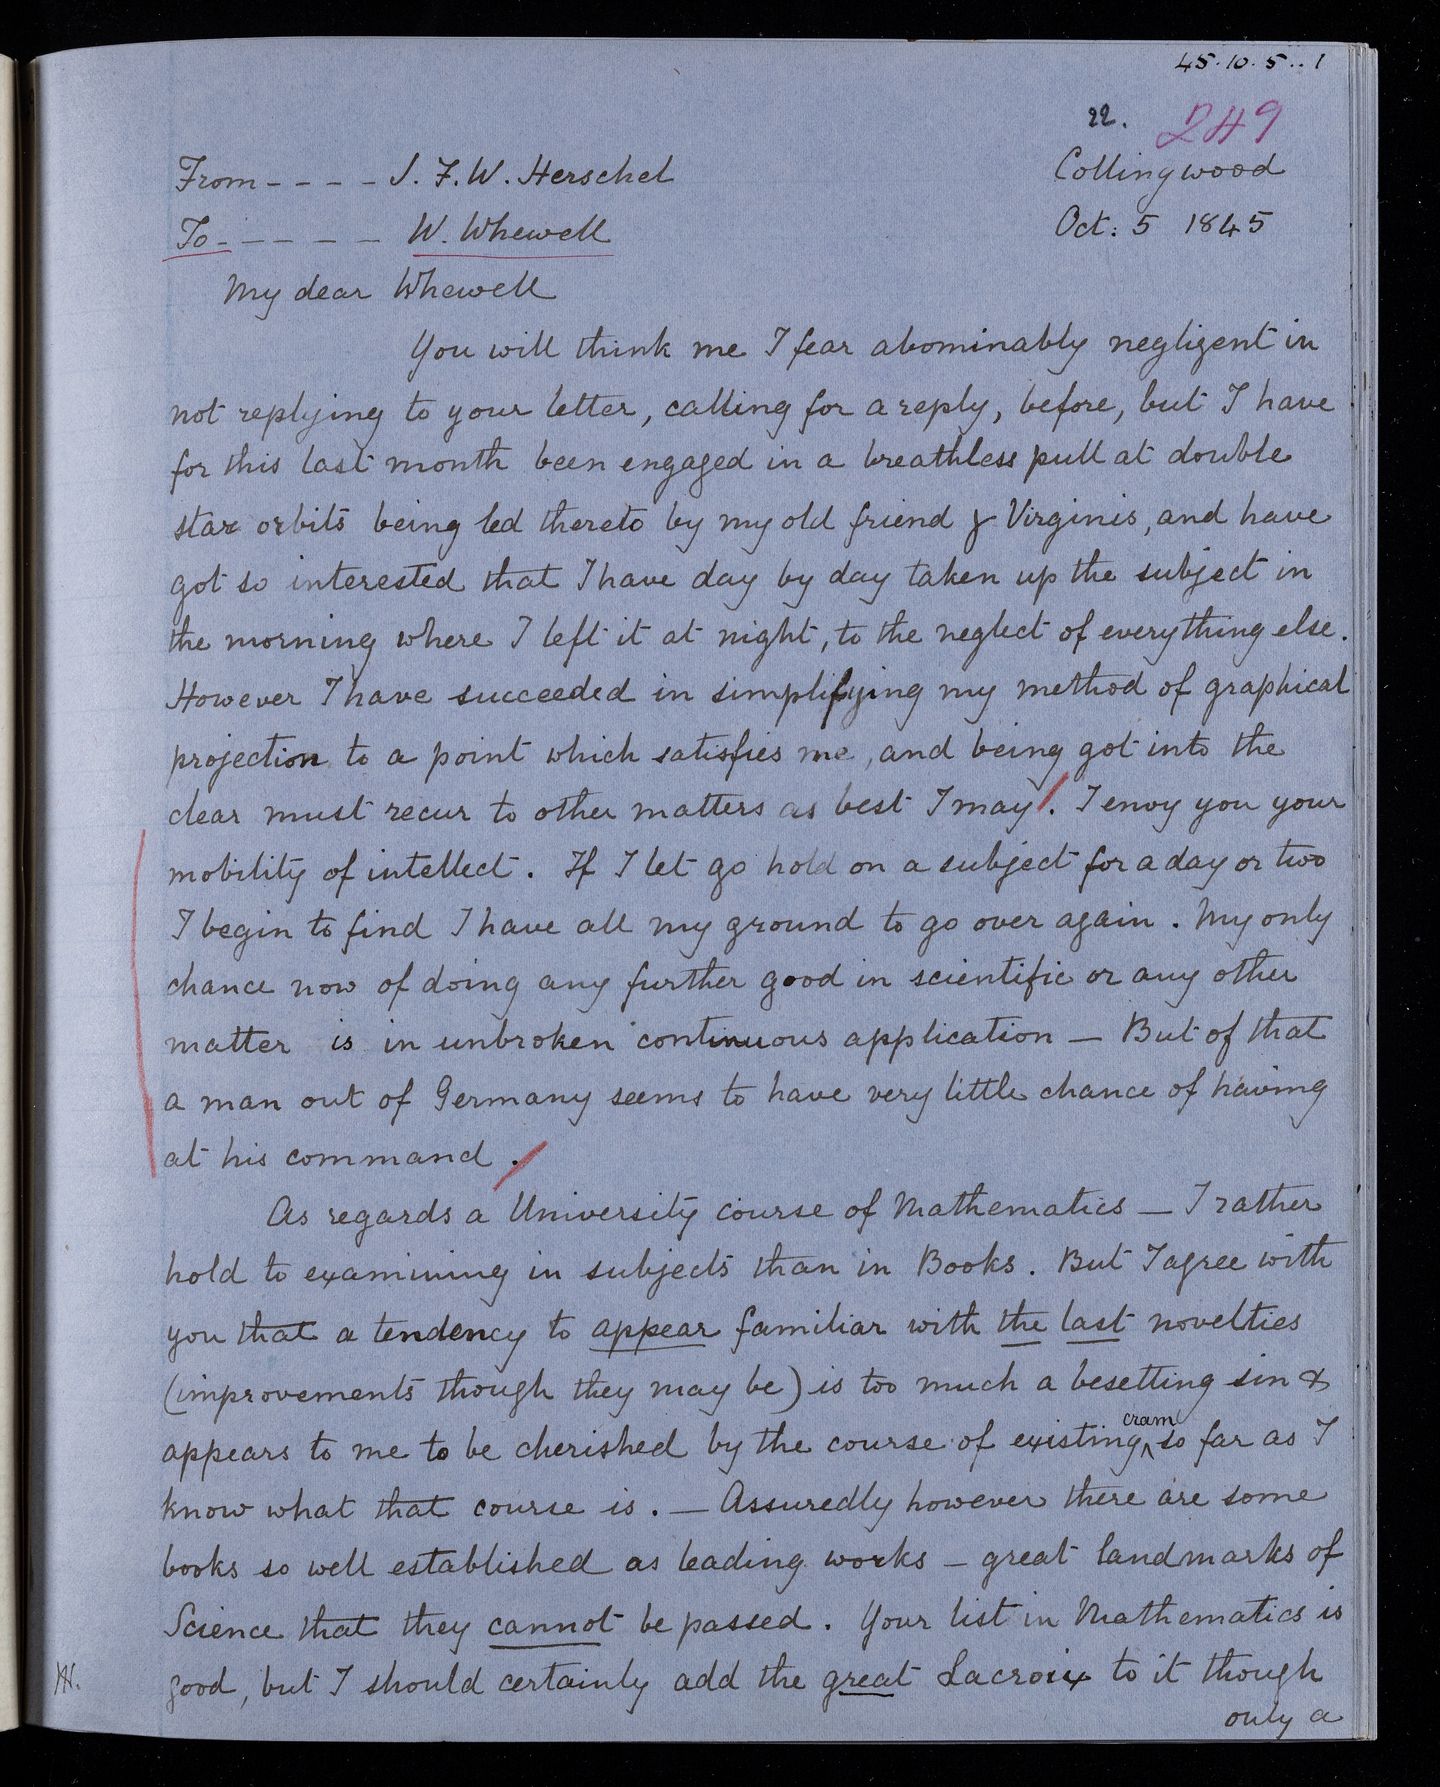 45.10.5..1
22. 249
From - - - - J. F. W. Herschel Collingwood
To - - - - - W. Whewell Oct: 5 1845
My dear Whewell
You will think me I fear abominably negligent in
not replying to your letter, calling for a reply, before, but I have
for this last month been engaged in a breathless pull at double
star orbits being led thereto by my old friend γ Virginis, and have
got so interested that I have day by day taken up the subject in
the morning where I left it at night, to the neglect of everything else.
However I have succeeded in simplifying my method of graphical
projection to a point which satisfies me, and being got into the
clear must recur to other matters as best I may. I envy you your
mobility of intellect. If I let go hold on a subject for a day or two
I begin to find I have all my ground to go over again. My only
chance now of doing any further good in scientific or any other
matter is in unbroken continuous application — But of that
a man out of Germany seems to have very little chance of having
at his command.
As regards a University course of Mathematics — I rather
hold to examining in subjects than in Books. But I agree with
you that a tendency to appear familiar with the last novelties
(improvements though they may be) is too much a besetting sin &
appears to me to be cherished by the course of existing cram so far as I
know what that course is. — Assuredly however there are some
books so well established as leading works — great landmarks of
Science that they cannot be passed. Your list in Mathematics is
good, but I should certainly add the great Lacroix to it though
only a